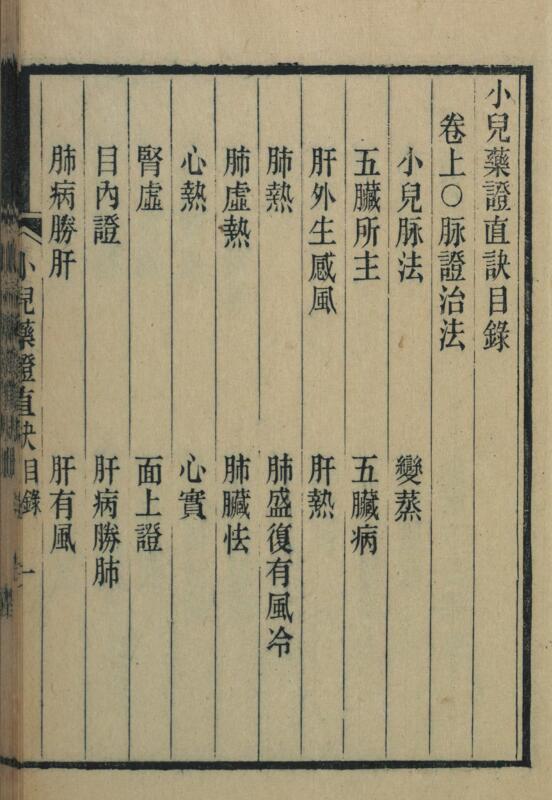 小兒藥證直訣目錄
卷上○脉證治法
小兒脉法
變蒸
五臟所主
五臟病
肝外生感風
肝熱
肺熱
肺盛復有風冷
肺虛熱
肺臟怯
心熱
心實
腎虛
面上證
目內證
肝病勝肺
肺病勝肝
肝有風
小兒藥證直訣目錄
一